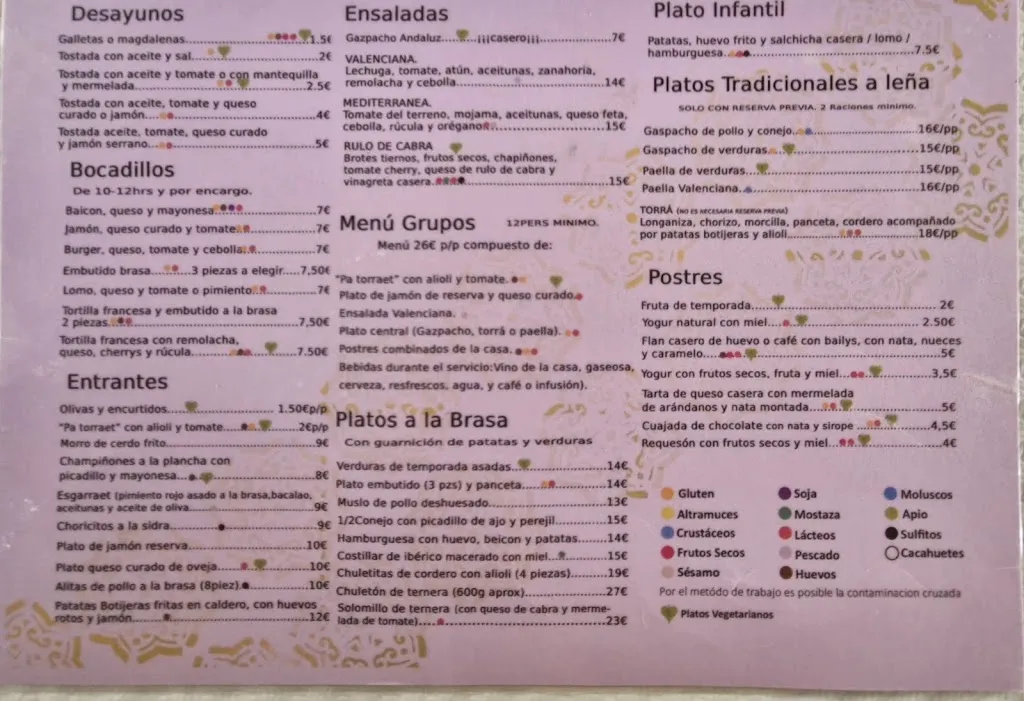 Desayunos
Galletas o magdalenas.................1.5€
Tostada con aceite y sal................2€
Tostada con aceite y tomate o con mantequilla
y mermelada................2.5€
Tostada con aceite, tomate y queso
curado o jamón................4€
Tostada aceite, tomate, queso curado
y jamón serrano................5€
Bocadillos
De 10-12hrs y por encargo.
Baicon, queso y mayonesa................7€
Jamón, queso curado y tomate................7€
Burger, queso, tomate y cebolla................7€
Embutido brasa......3 piezas a elegir....7,50€
Lomo, queso y tomate o pimiento................7€
Tortilla francesa y embutido a la brasa
2 piezas................7,50€
Tortilla francesa con remolacha,
queso, cherrys y rúcula................7.50€
Entrantes
Olivas y encurtidos................1.50€p/p
"Pa torraet" con alioli y tomate................2€p/p
Morro de cerdo frito................9€
Champiñones a la plancha con
picadillo y mayonesa................8€
Esgarraet (pimiento rojo asado a la brasa,bacalao,
aceitunas y aceite de oliva................9€
Choricitos a la sidra................9€
Plato de jamón reserva................10€
Plato queso curado de oveja................10€
Alitas de pollo a la brasa (8piez)................10€
Patatas Botijeras fritas en caldero, con huevos
rotos y jamón................12€
Ensaladas
Gazpacho Andaluz......¡¡¡casero¡¡¡................7€
VALENCIANA.
Lechuga, tomate, atún, aceitunas, zanahoria,
remolacha y cebolla................14€
MEDITERRANEA.
Tomate del terreno, mojama, aceitunas, queso feta,
cebolla, rúcula y orégano................15€
RULO DE CABRA
Brotes tiernos, frutos secos, chapiñones,
tomate cherry, queso de rulo de cabra y
vinagreta casera................15€
Menú Grupos 12PERS MINIMO.
Menú 26€ p/p compuesto de:
"Pa torraet" con alioli y tomate.
Plato de jamón de reserva y queso curado.
Ensalada Valenciana.
Plato central (Gazpacho, torrá o paella).
Postres combinados de la casa.
Bebidas durante el servicio:Vino de la casa, gaseosa,
cerveza, resfrescos, agua, y café o infusión).
Platos a la Brasa
Con guarnición de patatas y verduras
Verduras de temporada asadas................14€
Plato embutido (3 pzs) y panceta................14€
Muslo de pollo deshuesado................13€
1/2Conejo con picadillo de ajo y perejil................15€
Hamburguesa con huevo, beicon y patatas................14€
Costillar de ibérico macerado con miel................15€
Chuletitas de cordero con alioli (4 piezas)................19€
Chuletón de ternera (600g aprox)................27€
Solomillo de ternera (con queso de cabra y merme-
lada de tomate)................23€
Plato Infantil
Patatas, huevo frito y salchicha casera / lomo /
hamburguesa................7.5€
Platos Tradicionales a leña
SOLO CON RESERVA PREVIA. 2 Raciones minimo.
Gaspacho de pollo y conejo................16€/pp
Gaspacho de verduras................15€/pp
Paella de verduras................15€/pp
Paella Valenciana................16€/pp
TORRÁ (NO ES NECESARIA RESERVA PREVIA)
Longaniza, chorizo, morcilla, panceta, cordero acompañado
por patatas botijeras y alioli................18€/pp
Postres
Fruta de temporada................2€
Yogur natural con miel................2.50€
Flan casero de huevo o café con bailys, con nata, nueces
y caramelo................5€
Yogur con frutos secos, fruta y miel................3,5€
Tarta de queso casera con mermelada
de arándanos y nata montada................5€
Cuajada de chocolate con nata y sirope................4,5€
Requesón con frutos secos y miel................4€
Gluten Soja Moluscos
Altramuces Mostaza Apio
Crustáceos Lácteos Sulfitos
Frutos Secos Pescado Cacahuetes
Sésamo Huevos
Por el metódo de trabajo es posible la contaminacion cruzada
Platos Vegetarianos